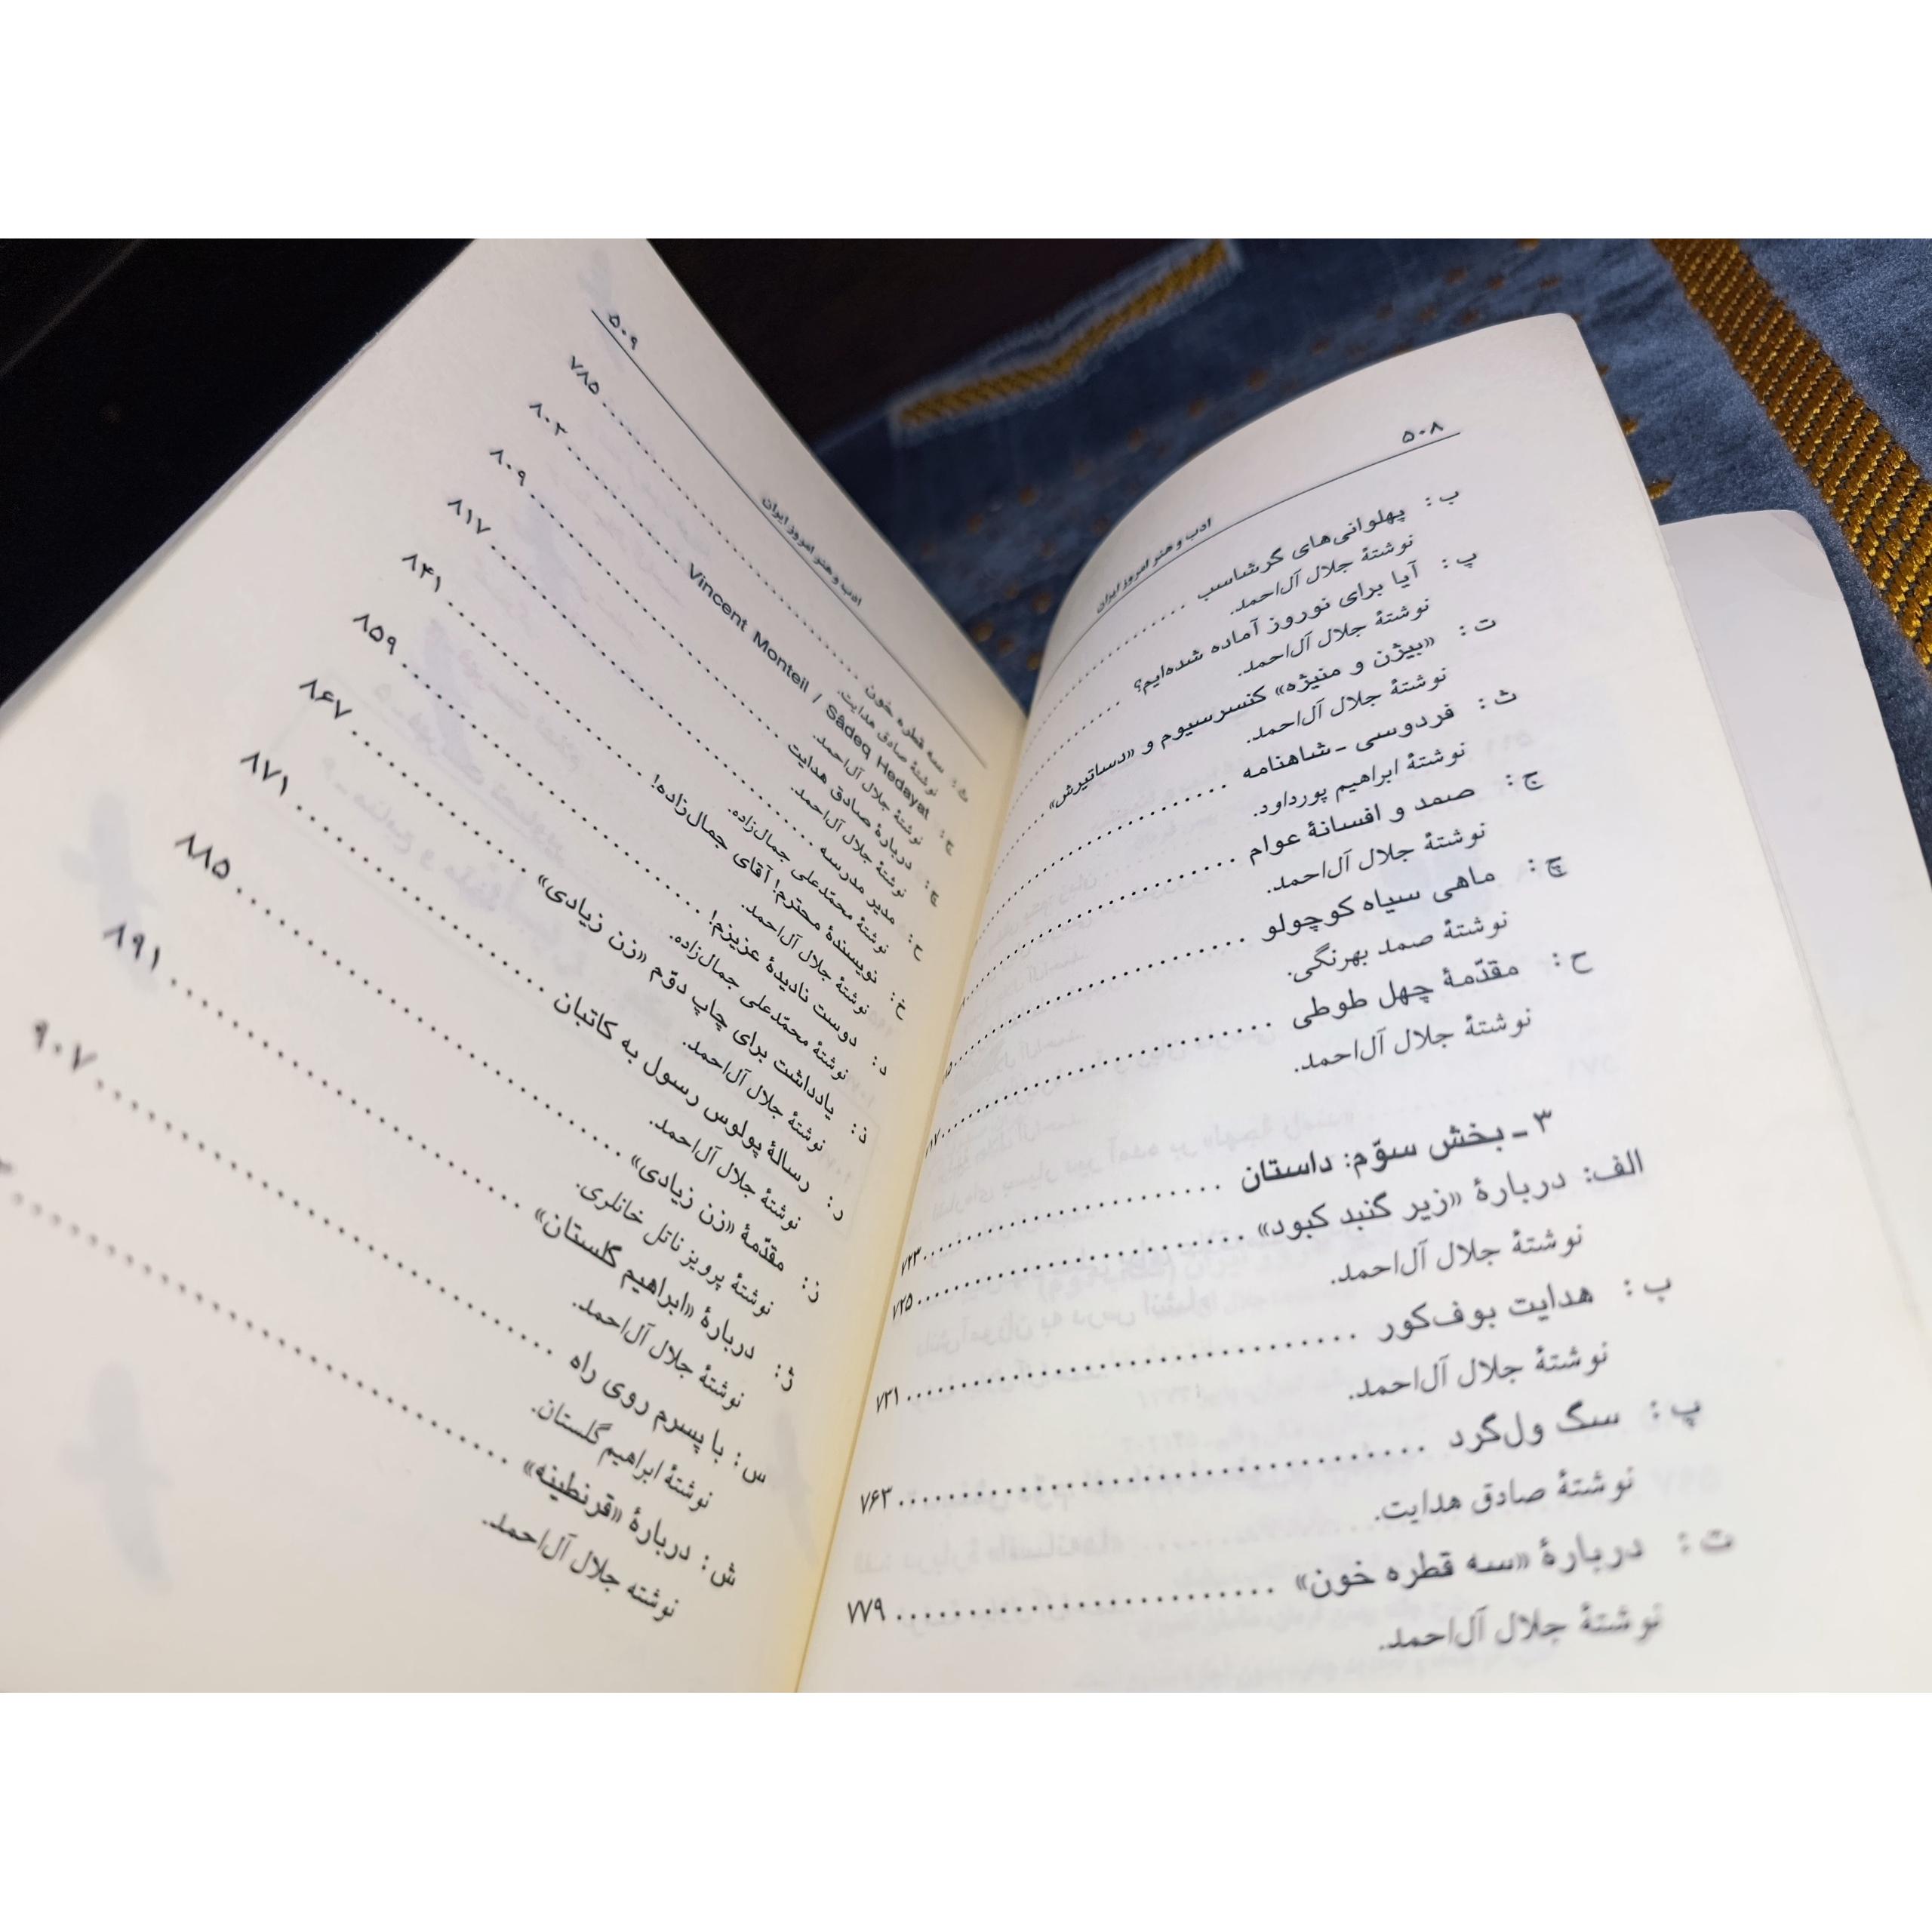 ۵۰۸
ادب و هنر امروز ایران
ب: پهلوانی‌های گرشاسب ..........
نوشتهٔ جلال آل‌احمد.
پ: آیا برای نوروز آماده شده‌ایم؟ ..........
نوشتهٔ جلال آل‌احمد.
ت: «بیژن و منیژه» کنسرسیوم و «دساتیرش»
نوشتهٔ جلال آل‌احمد.
ث: فردوسی ـ شاهنامه ..........
نوشتهٔ ابراهیم پورداود.
ج: صمد و افسانهٔ عوام ..........
نوشتهٔ جلال آل‌احمد.
چ: ماهی سیاه کوچولو ..........
نوشتهٔ صمد بهرنگی.
ح: مقدّمهٔ چهل طوطی ..........
نوشتهٔ جلال آل‌احمد.
۳ ـ بخش سوّم: داستان .......... ۷۲۳
الف: دربارهٔ «زیر گنبد کبود» .......... ۷۲۵
نوشتهٔ جلال آل‌احمد.
ب: هدایت بوف‌کور .......... ۷۳۱
نوشتهٔ جلال آل‌احمد.
پ: سگ ول‌گرد .......... ۷۶۳
نوشتهٔ صادق هدایت.
ت: دربارهٔ «سه قطره خون» .......... ۷۷۹
نوشتهٔ جلال آل‌احمد.
ادب و هنر امروز ایران
۵۰۹
ث: سه قطره خون .......... ۷۸۵
نوشتهٔ صادق هدایت.
ج: Vincent Monteil / Sâdeq Hedayat .......... ۸۰۳
نوشتهٔ جلال آل‌احمد.
چ: دربارهٔ صادق هدایت .......... ۸۰۹
نوشتهٔ جلال آل‌احمد.
ح: مدیر مدرسه .......... ۸۱۷
نوشتهٔ محمّدعلی جمال‌زاده.
خ: نویسندهٔ محترم! آقای جمال‌زاده! .......... ۸۴۱
نوشتهٔ جلال آل‌احمد.
د: دوست نادیدهٔ عزیزم! .......... ۸۵۹
نوشتهٔ محمّدعلی جمال‌زاده.
ذ: یادداشت برای چاپ دوّم «زن زیادی» .......... ۸۶۷
نوشتهٔ جلال آل‌احمد.
ر: رسالهٔ پولوس رسول به کاتبان .......... ۸۷۱
نوشتهٔ جلال آل‌احمد.
ز: مقدّمهٔ «زن زیادی» .......... ۸۸۵
نوشتهٔ پرویز ناتل خانلری.
ژ: دربارهٔ «ابراهیم گلستان» .......... ۸۹۱
نوشتهٔ جلال آل‌احمد.
س: با پسرم روی راه .......... ۹۰۷
نوشتهٔ ابراهیم گلستان.
ش: دربارهٔ «قرنطینه» ..........
نوشته جلال آل‌احمد.